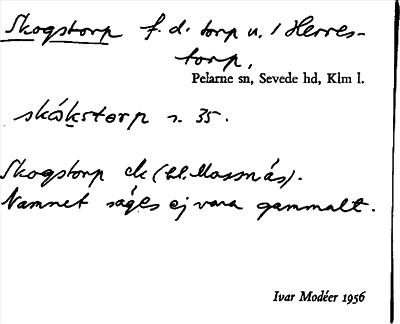 Skogstorp f.d. torp u. 1 Herres-
torp,
Pelarne sn, Sevede hd, Klm l.
skåkstorp s. 35.
Skogstorp ek (Ll. Mossnäs).
Namnet säges ej vara gammalt.
Ivar Modéer 1956